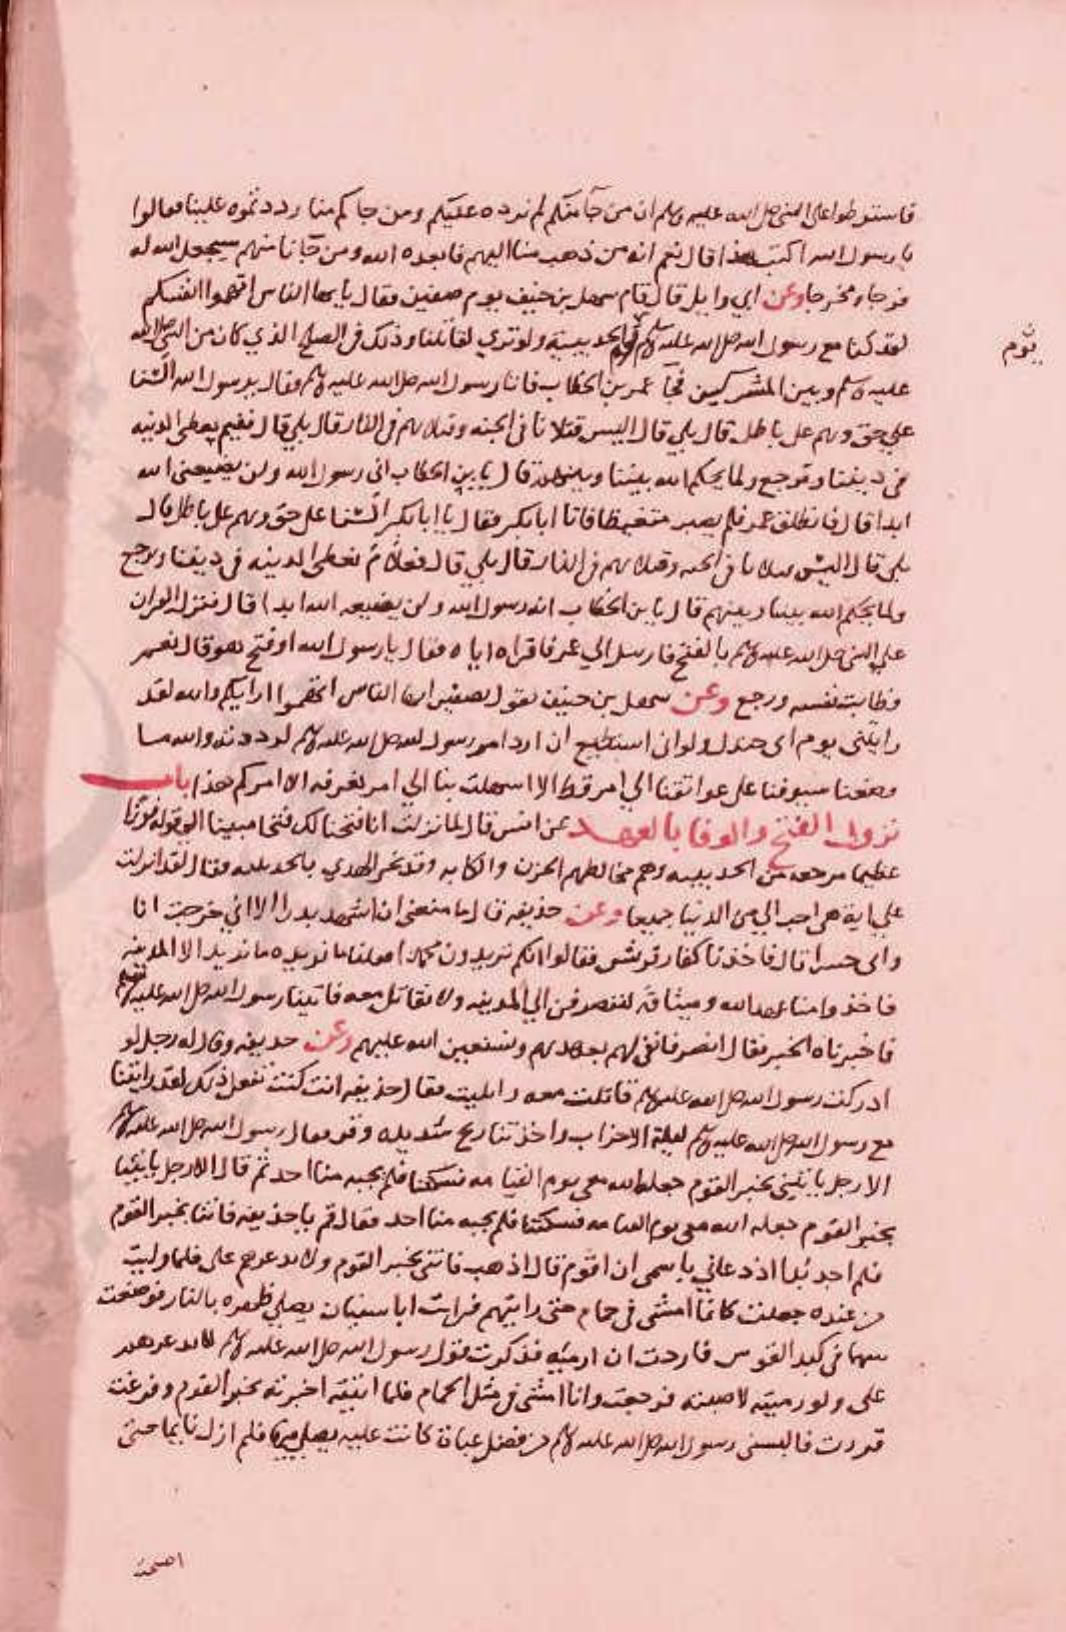 فاشترطوا على النبي صلى الله عليه وسلم ان من جآ منكم لم نرده عليكم ومن جاكم منا رددتموه علينا فقالوا
يا رسول الله اكتب هذا قال نعم انه من ذهب منا اليهم فابعده الله ومن جآنا منهم سيجعل الله له
فرجا ومخرجا وعن ابي وايل قال قام سهل بن حنيف يوم صفين فقال يايها الناس اتهموا انفسكم
لقد كنا مع رسول الله صلى الله عليه وسلم يوم الحديبية ولو نري لقاتلنا وذلك في الصلح الذي كان من النبي صلى الله
يوم
عليه وسلم وبين المشركين فجآ عمر بن الخطاب فاتا رسول الله صلى الله عليه وسلم فقال يرسول الله السنا
علي حق وهم على باطل قال بلي قال اليس قتلانا في الجنه وقتلاهم في النار قال بلي قال ففيم نعطى الدنيه
في ديننا ونرجع ولما يحكم الله بيننا وبينهم قال يا بن الخطاب اني رسول الله ولن يضيعني الله
ابدا قال فانطلق عمر فلم يصبر متغيظا فاتا ابا بكر فقال يا ابا بكر السنا على حق وهم على باطل قال
بلى قال اليس قتلانا في الجنه وقتلاهم في النار قال بلي قال فعلام نعطى الدنيه في ديننا ونرجع
ولما يحكم الله بيننا وبينهم قال يا بن الخطاب انه رسول الله ولن يضيعه الله ابدا قال فنزل القران
علي النبي صلى الله عليه وسلم بالفتح فارسل الي عمر فاقراه اياه فقال يا رسول الله اوفتح هو قال نعم
فطابت نفسه ورجع وعن سهل بن حنيف يقول بصفين ايها الناس اتهموا رايكم والله لقد
رايتني يوم ابى جندل ولو اني استطيع ان ارد امر رسول الله صلى الله عليه وسلم لرددته والله ما
وضعنا سيوفنا على عواتقنا الي امر قط الا اسهلن بنا الي امر نعرفه الا امركم هذا باب
نزول الفتح والوفا بالعهد عن انس قال لما نزلت انا فتحنا لك فتحا مبينا الي قوله فوزا
عظيما مرجعه من الحديبيه وهم مخالطهم الحزن والكابه وقد نحر الهدي بالحديبيه فقال لقد انزلت
علي اية هي احب الي من الدنيا جميعا وعن حذيفه قال ما منعني ان اشهد بدرا الا اني خرجت انا
وابى حسيل قال فاخذنا كفار قريش فقالوا انكم تريدون محمدا فقلنا ما نريده ما نريد الا المدينه
فاخذوا منا عهد الله وميثاقه لننصرفن الي المدينه ولا نقاتل معه فاتينا رسول الله صلى الله عليه وسلم
فاخبرناه الخبر فقال انصرفا نفي لهم بعهدهم ونستعين الله عليهم وعن حذيفه وقال له رجل لو
ادركت رسول الله صلى الله عليه وسلم قاتلت معه وابليت فقال حذيفه انت كنت تفعل ذلك لقد رايتنا
مع رسول الله صلى الله عليه وسلم ليلة الاحزاب واخذتنا ريح شديده وقر فقال رسول الله صلى الله عليه وسلم
الا رجل ياتيني بخبر القوم جعله الله معي يوم القيامه فسكتنا فلم يجبه منا احد ثم قال الا رجل ياتينا
بخبر القوم جعله الله معي يوم القيامه فسكتنا فلم يجبه منا احد فقال قم يا حذيفه فاتنا بخبر القوم
فلم اجد بدا اذ دعاني باسمى ان اقوم قال اذهب فاتنى بخبر القوم ولا تذعرهم على فلما وليت
من عنده جعلت كانما امشى في حمام حتى رايتهم فرايت ابا سفيان يصلي ظهره بالنار فوضعت
سهما في كبد القوس فاردت ان ارميه فذكرت قول رسول الله صلى الله عليه وسلم لا تذعرهم
على ولو رميته لاصبته فرجعت وانا امشى في مثل الحمام فلما اتيته اخبرته بخبر القوم وفرغت
قررت فالبسنى رسول الله صلى الله عليه وسلم من فضل عباة كانت عليه يصلي فيها فلم ازل نايما حتى
اصبحت